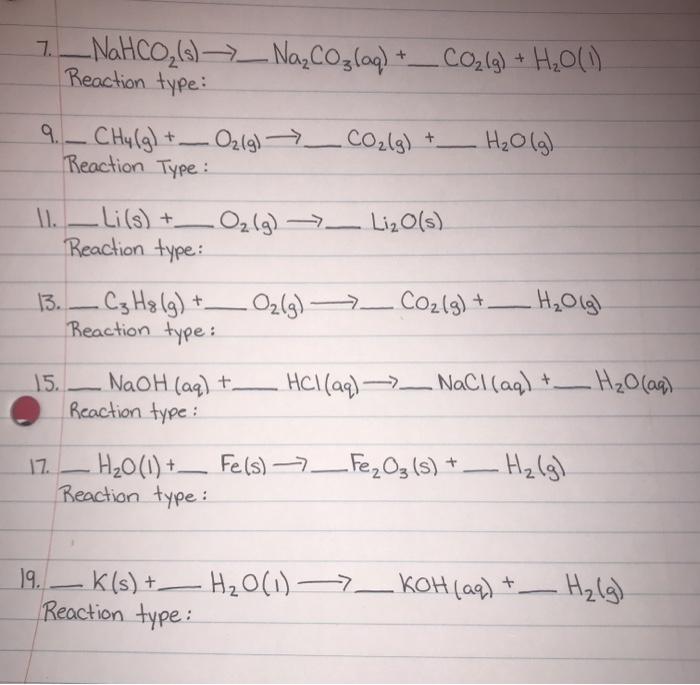 7. __NaHCO₂(s) → __ Na₂CO₃(aq) + __ CO₂(g) + H₂O(l)
Reaction type:
9. __ CH₄(g) + __ O₂(g) → __ CO₂(g) + __ H₂O(g)
Reaction Type:
11. __ Li(s) + __ O₂(g) → __ Li₂O(s)
Reaction type:
13. __ C₃H₈(g) + __ O₂(g) → __ CO₂(g) + __ H₂O(g)
Reaction type:
15. __ NaOH(aq) + __ HCl(aq) → __ NaCl(aq) + __ H₂O(aq)
Reaction type:
17. __ H₂O(l) + __ Fe(s) → __ Fe₂O₃(s) + __ H₂(g)
Reaction type:
19. __ K(s) + __ H₂O(l) → __ KOH(aq) + __ H₂(g)
Reaction type: